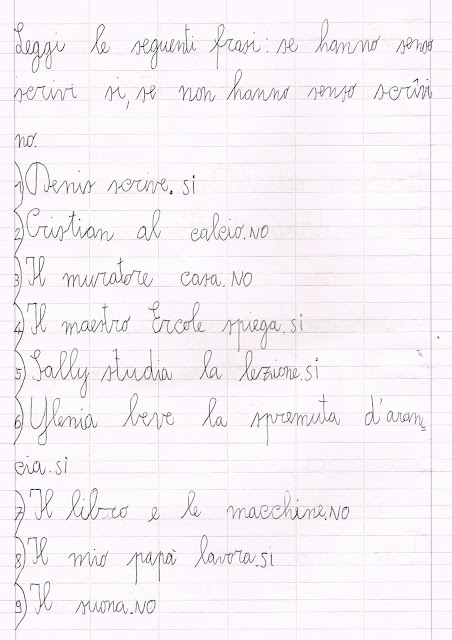 Leggi le seguenti frasi: se hanno senso
scrivi si, se non hanno senso scrivi
no.
1) Denis scrive. si
2) Cristian al calcio. NO
3) Il muratore casa. NO
4) Il maestro Ercole spiega. si
5) Sally studia la lezione. si
6) Ylenia beve la spremuta d'aran=
cia. si
7) Il libro e le macchine. NO
8) Il mio papà lavora. si
9) Il suona. NO